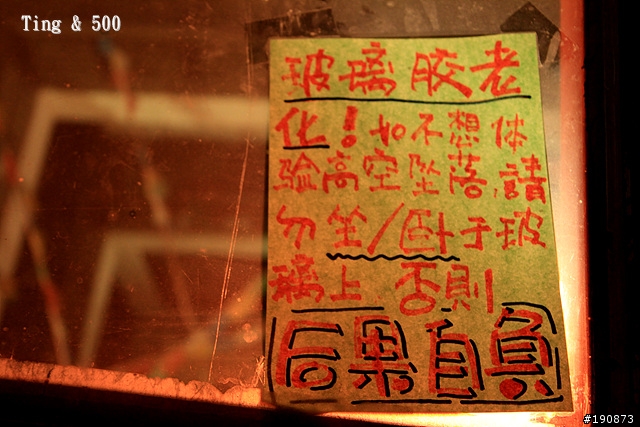 Ting & 500
玻璃胶老
化！如不想体
验高空坠落,請
勿坐/卧于玻
璃上 否則
后果自負
#190873